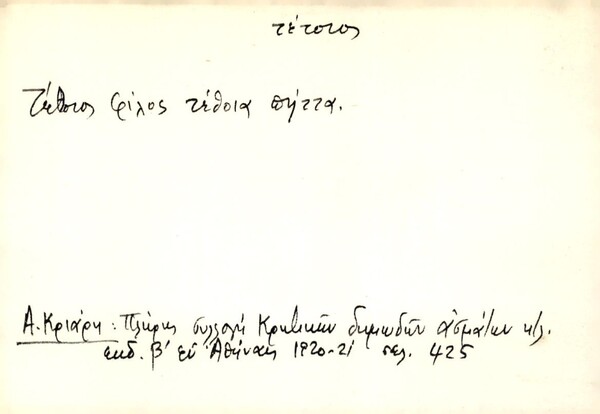 τέτοιος
Τέθοιος φίλος τέθοια πήττα.
Α. Κριάρη: Πλήρης συλλογή Κρητικῶν δημωδῶν ἀσμάτων κ/λ.
ἐκδ. β' ἐν Ἀθήναις 1920-21 σελ. 425